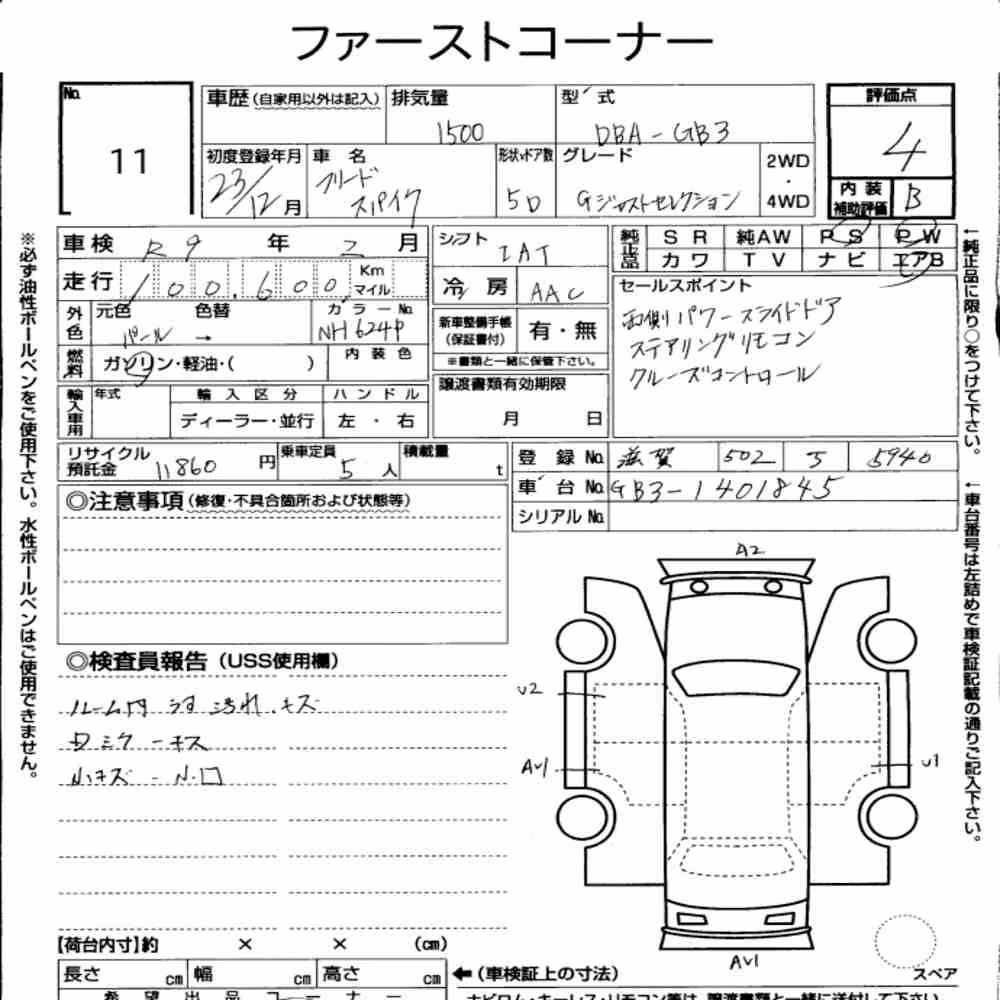 ファーストコーナー
No.
11
車歴(自家用以外は記入) 排気量 型式
1500 DBA-GB3
評価点
4
初度登録年月 車名 形状ドア数 グレード 2WD・4WD
23/12月 フリードスパイク 5D Gジャストセレクション
内装補助評価 B
車検 R9年2月 シフト IAT
純正品 SR 純AW PS PW
カワ TV ナビ エアB
走行 100,600 Km マイル
冷房 AAC
セールスポイント
両側パワースライドドア
ステアリングリモコン
クルーズコントロール
外色 元色 色替 カラーNo.
パール → NH624P
新車整備手帳(保証書付) 有・無
※書類と一緒に保管下さい。
燃料 ガソリン・軽油・( ) 内装色
譲渡書類有効期限
月 日
輸入車用 年式 輸入区分 ハンドル
ディーラー・並行 左・右
リサイクル預託金 11860円 乗車定員 5人 積載量 t
登録No. 滋賀 502 5940
車台No. GB3-1401845
シリアルNo.
◎注意事項(修復・不具合箇所および状態等)
◎検査員報告(USS使用欄)
ルーム内 汚れ.キズ
A2
U2
AV1
U1
AV1
スペア
【荷台内寸】約 × × (cm)
長さ cm 幅 cm 高さ cm
←(車検証上の寸法)
希望出品コーナー
※必ず油性ボールペンをご使用下さい。水性ボールペンはご使用できません。
←純正品に限り○をつけて下さい。
←車台番号は左詰めで車検証記載の通りご記入下さい。